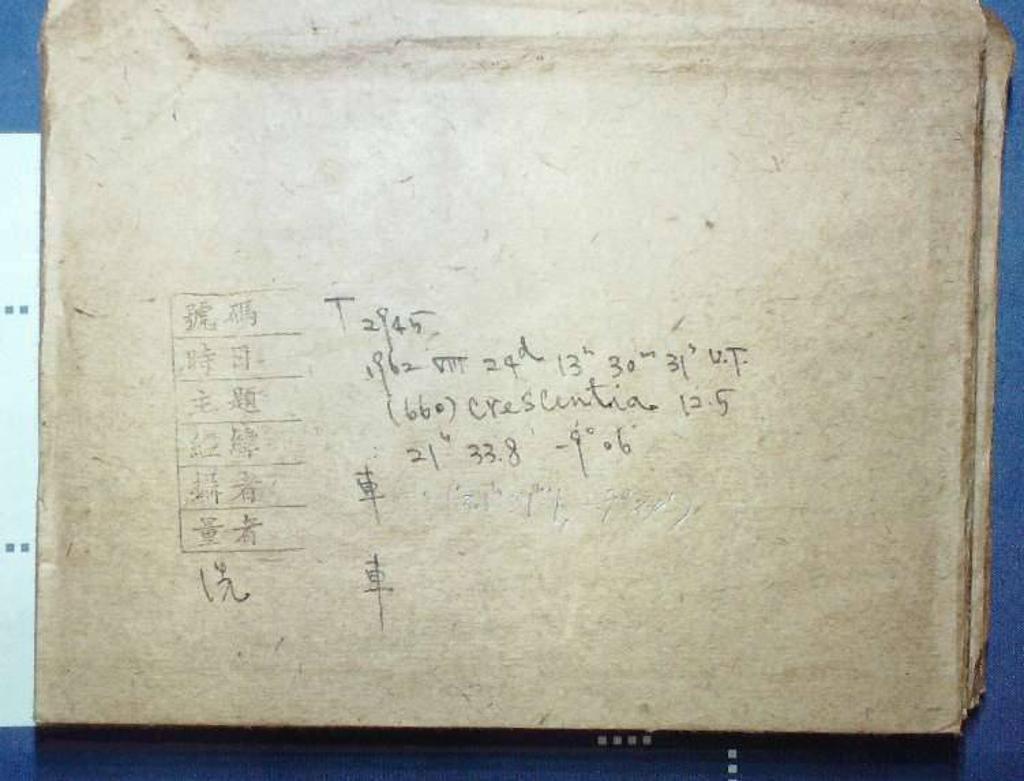 號碼 T 2945
時日 1962 VIII 24d 13h 30m 31s U.T.
主題 (660) crescentia 12.5
經緯 21h 33.8 -9° 06'
攝者 車
量者
洗 車